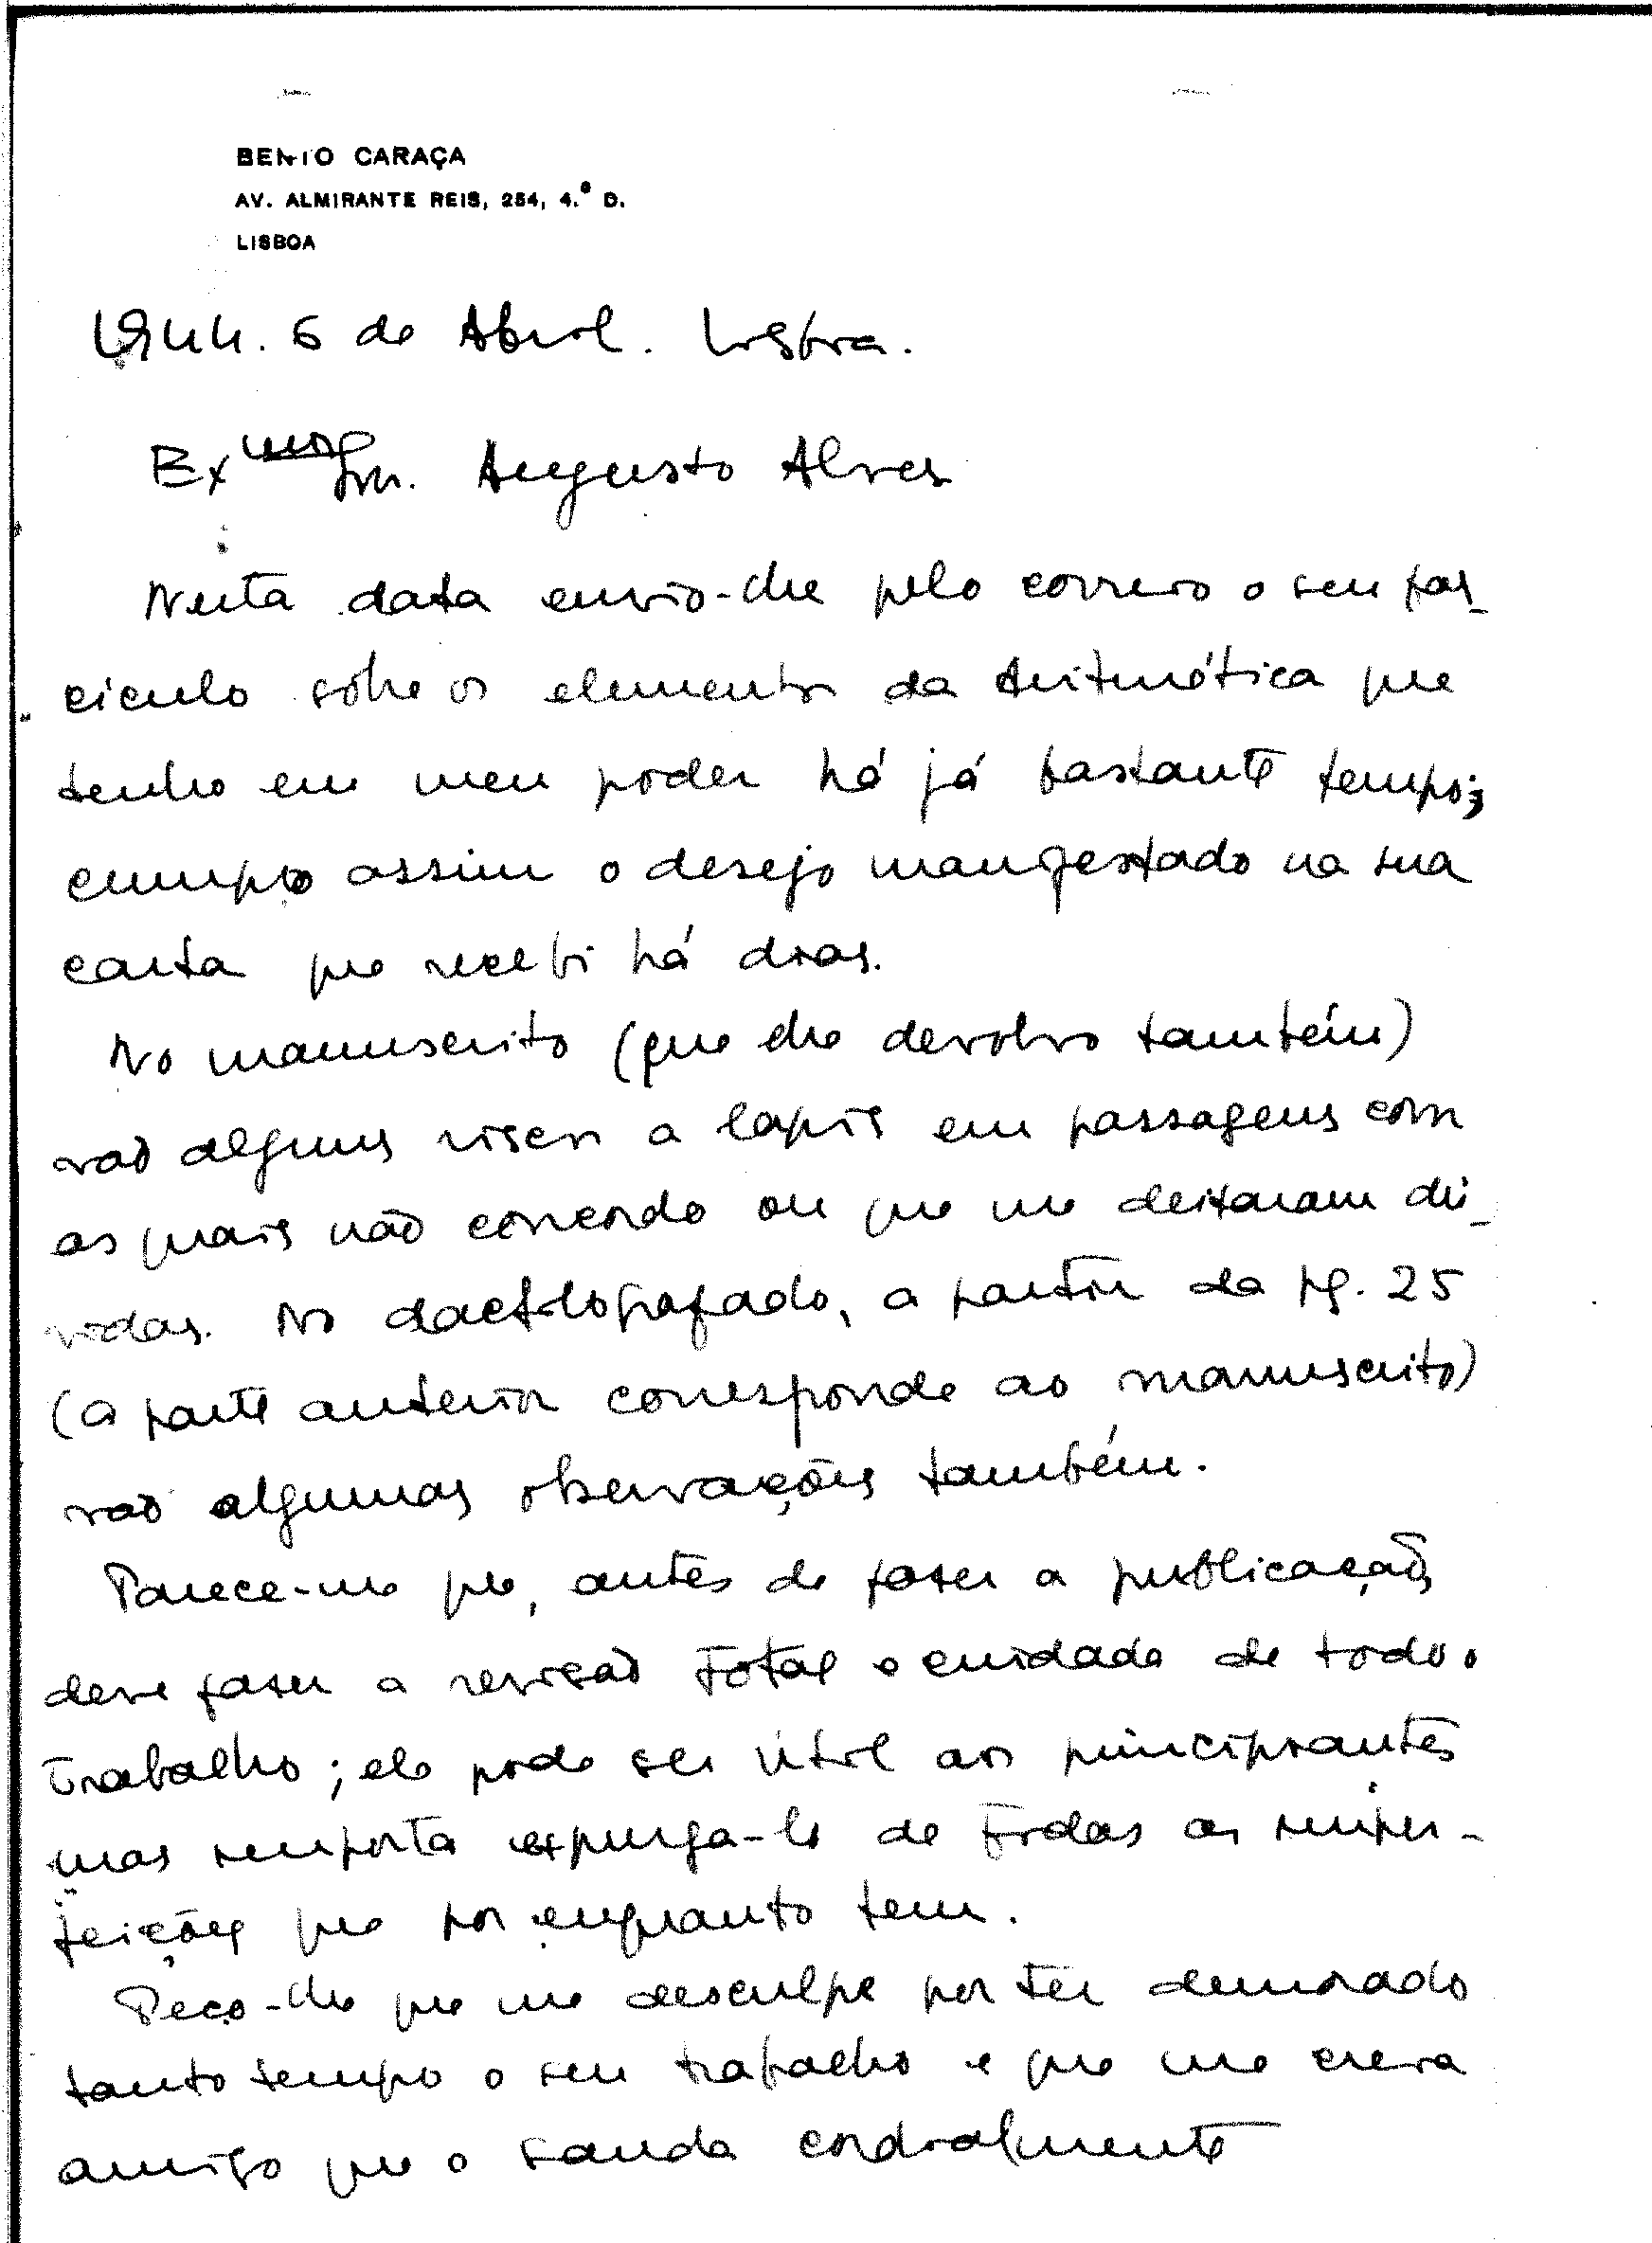 BENTO CARAÇA
AV. ALMIRANTE REIS, 254, 4.º D.
LISBOA
1944. 6 de Abril. Lisboa.
Exmo Snr. Augusto Alves
Nesta data envio-lhe pelo correio o seu fas-
cículo sôbre os elementos da Aritmética que
tenho em meu poder há já bastante tempo;
cumpro assim o desejo manifestado na sua
carta que recebi há dias.
No manuscrito (que lhe devolvo também)
vão alguns riscos a lapis em passagens com
as quais não concordo ou que me deixaram dú-
vidas. No dactilografado, a partir da pg. 25
(a parte anterior corresponde ao manuscrito)
vão algumas observações também.
Parece-me que, antes de fazer a publicação,
deve fazer a revisão total e cuidada de todo o
trabalho; ele pode ser útil aos principiantes
mas importa expurga-lo de todas as imper-
feições que por enquanto tem.
Peço-lhe que me desculpe por ter demorado
tanto tempo o seu trabalho e que me creia
amigo que o sauda cordialmente